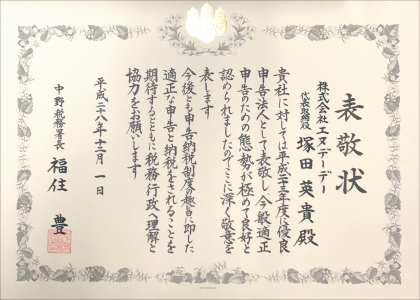 表敬状
株式会社エヌデーデー
代表取締役
塚田英貴殿
貴社に対しては平成二十三年度に優良
申告法人として表敬し、今般適正
申告のための態勢が極めて良好と
認められましたのでここに深く敬意を
表します
今後とも申告納税制度の趣旨に即した
適正な申告と納税をされることを
期待するとともに税務行政へ理解と
協力をお願いします
平成二十八年十一月一日
中野税務署長
福住豊